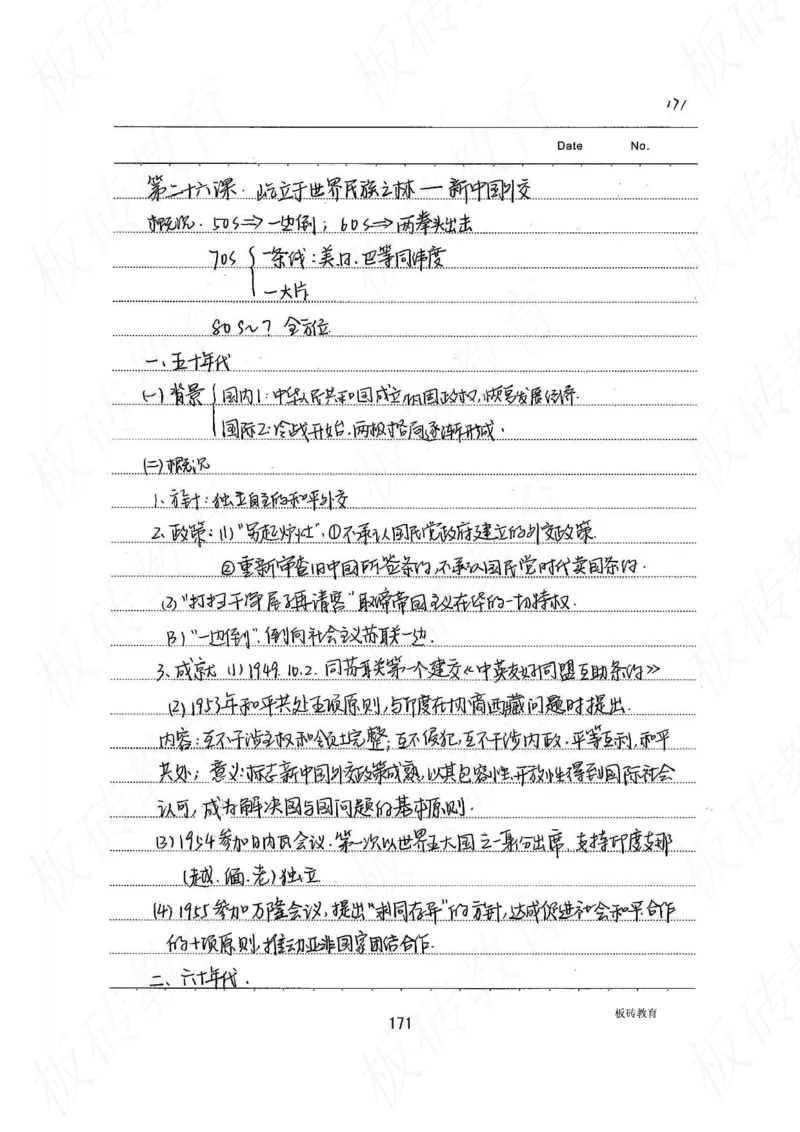 171
Date No.
第二十六课. 屹立于世界民族之林 — 新中国外交
概况. 50s⇒一边倒; 60s⇒两拳头出击
70s { 一条线: 美.日.巴等同纬度
一大片
80s~? 全方位
一、五十年代
(一) 背景 { 国内1: 中华人民共和国成立 巩固政权,恢复发展经济.
国际2: 冷战开始.两极格局逐渐形成.
(二) 概况
1. 方针: 独立自主的和平外交
2. 政策: (1) "另起炉灶". ①不承认国民党政府建立的外交政策.
②重新审查旧中国所签条约,不承认国民党时代卖国条约.
(2) "打扫干净屋子再请客" 取缔帝国主义在华的一切特权.
(3) "一边倒". 倒向社会主义苏联一边.
3. 成就 (1) 1949.10.2. 同苏联第一个建交《中苏友好同盟互助条约》
(2) 1953年和平共处五项原则,与印度在协商西藏问题时提出.
内容: 互不干涉主权和领土完整; 互不侵犯,互不干涉内政.平等互利,和平
共处; 意义:标志新中国外交政策成熟,以其包容性,开放性得到国际社会
认可, 成为解决国与国问题的基本原则.
(3) 1954参加日内瓦会议. 第一次以世界五大国之一身份出席. 支持印度支那
(越.缅.老) 独立
(4) 1955参加万隆会议, 提出"求同存异"的方针, 达成促进社会和平合作
的十项原则,推动亚非国家团结合作.
二、六十年代.
171
板砖教育